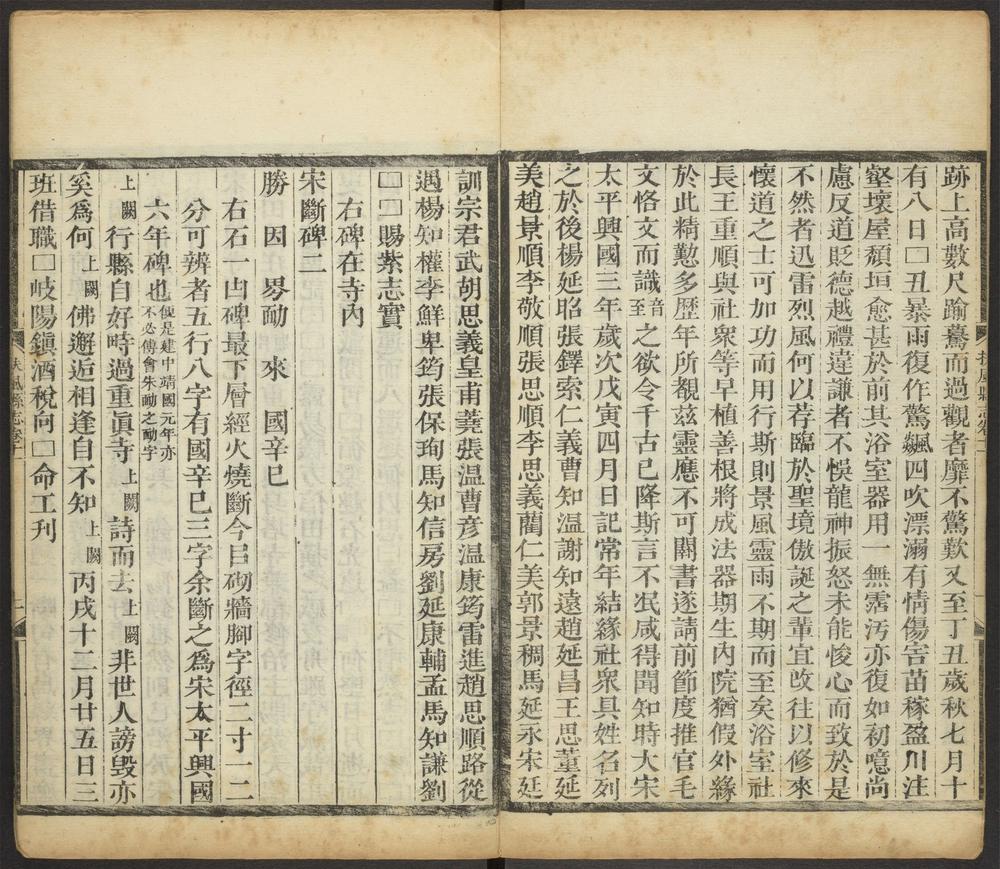 跡上高數尺踰驀而過觀者靡不驚歎又至丁丑歲秋七月十
有八日□丑暴雨復作驚飆四吹漂溺有情傷害苗稼盈川注
壑壞屋頹垣愈甚於前其浴室器用一無霑汚亦復如初噫尚
慮反道貶德越禮違謙者不悞龍神振怒未能悛心而致於是
不然者迅雷烈風何以荐臨於聖境傲誕之輩宜改往以修來
懷道之士可加功而用行斯則景風靈雨不期而至矣浴室社
長王重順與社衆等早植善根將成法器期生內院猶假外緣
於此精懃多歷年所覩茲靈應不可闕書遂請前節度推官毛
文恪文而識音至之欲令千古已降斯言不泯咸得聞知時大宋
太平興國三年歲次戊寅四月日記常年結緣社衆具姓名列
之於後楊延昭張鐸索仁義曹知温謝知遠趙延昌王思董延
美趙景順李敬順張思順李思義藺仁美郭景稠馬延永宋延
扶風縣志卷十一
訓宗君武胡思義皇甫蕘張温曹彥温康筠雷進趙思順路從
遇楊知權李鮮卑筠張保珣馬知信房劉延康輔孟馬知謙劉
□□賜紫志實
右碑在寺內
宋斷碑二
勝因 界勔 來 國辛巳
右石一凷碑最下層經火燒斷今㠯砌牆腳字徑二寸一二
分可辨者五行八字有國辛巳三字余斷之爲宋太平興國
六年碑也便是建中靖國元年亦不必傅會朱勔之勔字
上闕行縣自好畤過重眞寺上闕詩而去上闕非世人謗毀亦
奚爲何上闕佛邂逅相逢自不知上闕丙戌十二月廿五日三
班借職□岐陽鎭酒稅向□命工刊
扶風縣志卷十一